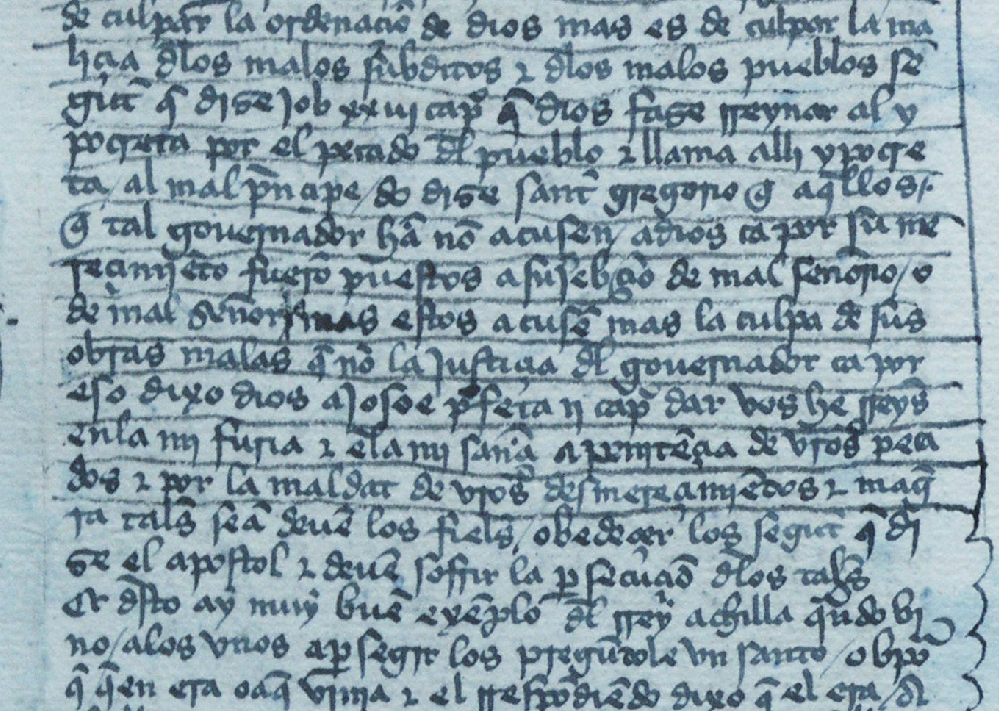 de culpar la ordenaçiõ de dios mas es de culpar la ma
liçia dlos malos subditos ⁊ dlos malos pueblos se
gũt q̃ dise Job xxvi cap̃ q̃ dios fase rreynar al y
pocreta por el pecado dl pueblo ⁊ llama alli ypocre
ta / al mal prinçipe / do dise sant gregorio q̃ aq̃llos
q̃ tal gouernador hã nõ acusen / a dios ca por su me
reçimiẽto fuerõ puestos a de mal señorio / o
de mal señor / mas estos acusẽ mas la culpa de sus
obras malas q̃ nõ la Justiçia dl gouernador ca por
eso dixo dios a Josoe p̃feta ii cap̃ dar vos he rreys̃
en la mi furia ⁊ ẽ la mi saña a penitẽçia de vros̃ peca
dos ⁊ por la maldat de vros̃ desmereçimiẽtos ⁊ maq̃
ra tals̃ seã deuẽ los fiels̃ / obedeçer los segũt q̃ di
se el apostol ⁊ deuẽ soffrir la p̱secuçiõ dlos tals̃
Et dsto ay muy buẽ exẽplo dl rrey achilla q̃ndo vi
no / a los vnos a p̱segir los pregũtole vn santo / obpõ
q̃ q̃en era ⁊ el rrespõdiẽdo dixo q̃ el era /